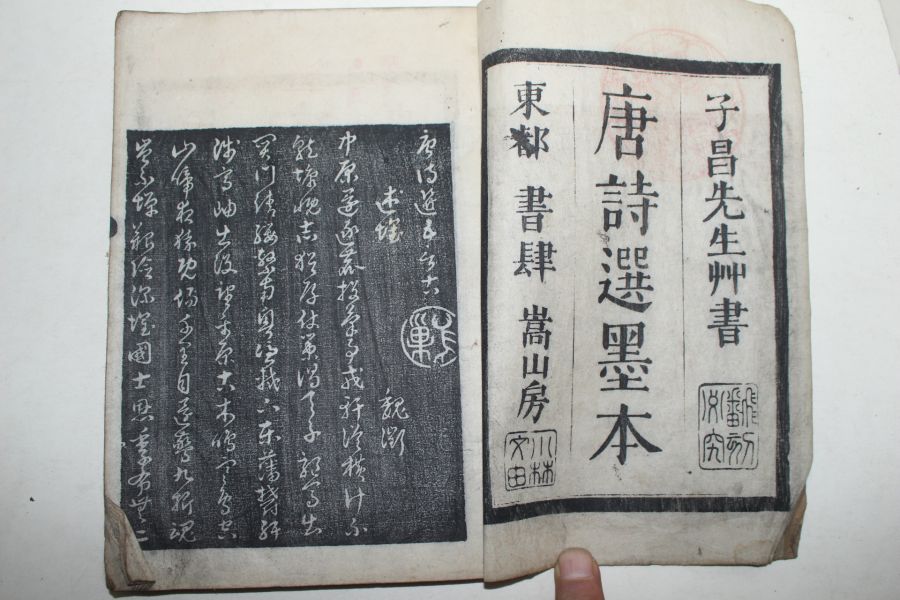 子昌先生艸書
唐詩選墨本
東都 書肆 嵩山房
飜刻必究
唐詩選五言古
述懷
魏徵
中原還逐鹿投筆事戎軒縱橫計不
就慷慨志猶存仗策謁天子驅馬出
關門請纓繫南粵憑軾下東藩鬱紆
陟高岫出沒望平原古木鳴寒鳥空
山啼夜猿既傷千里目還驚九折魂
豈不憚艱險深懷國士恩季布無二